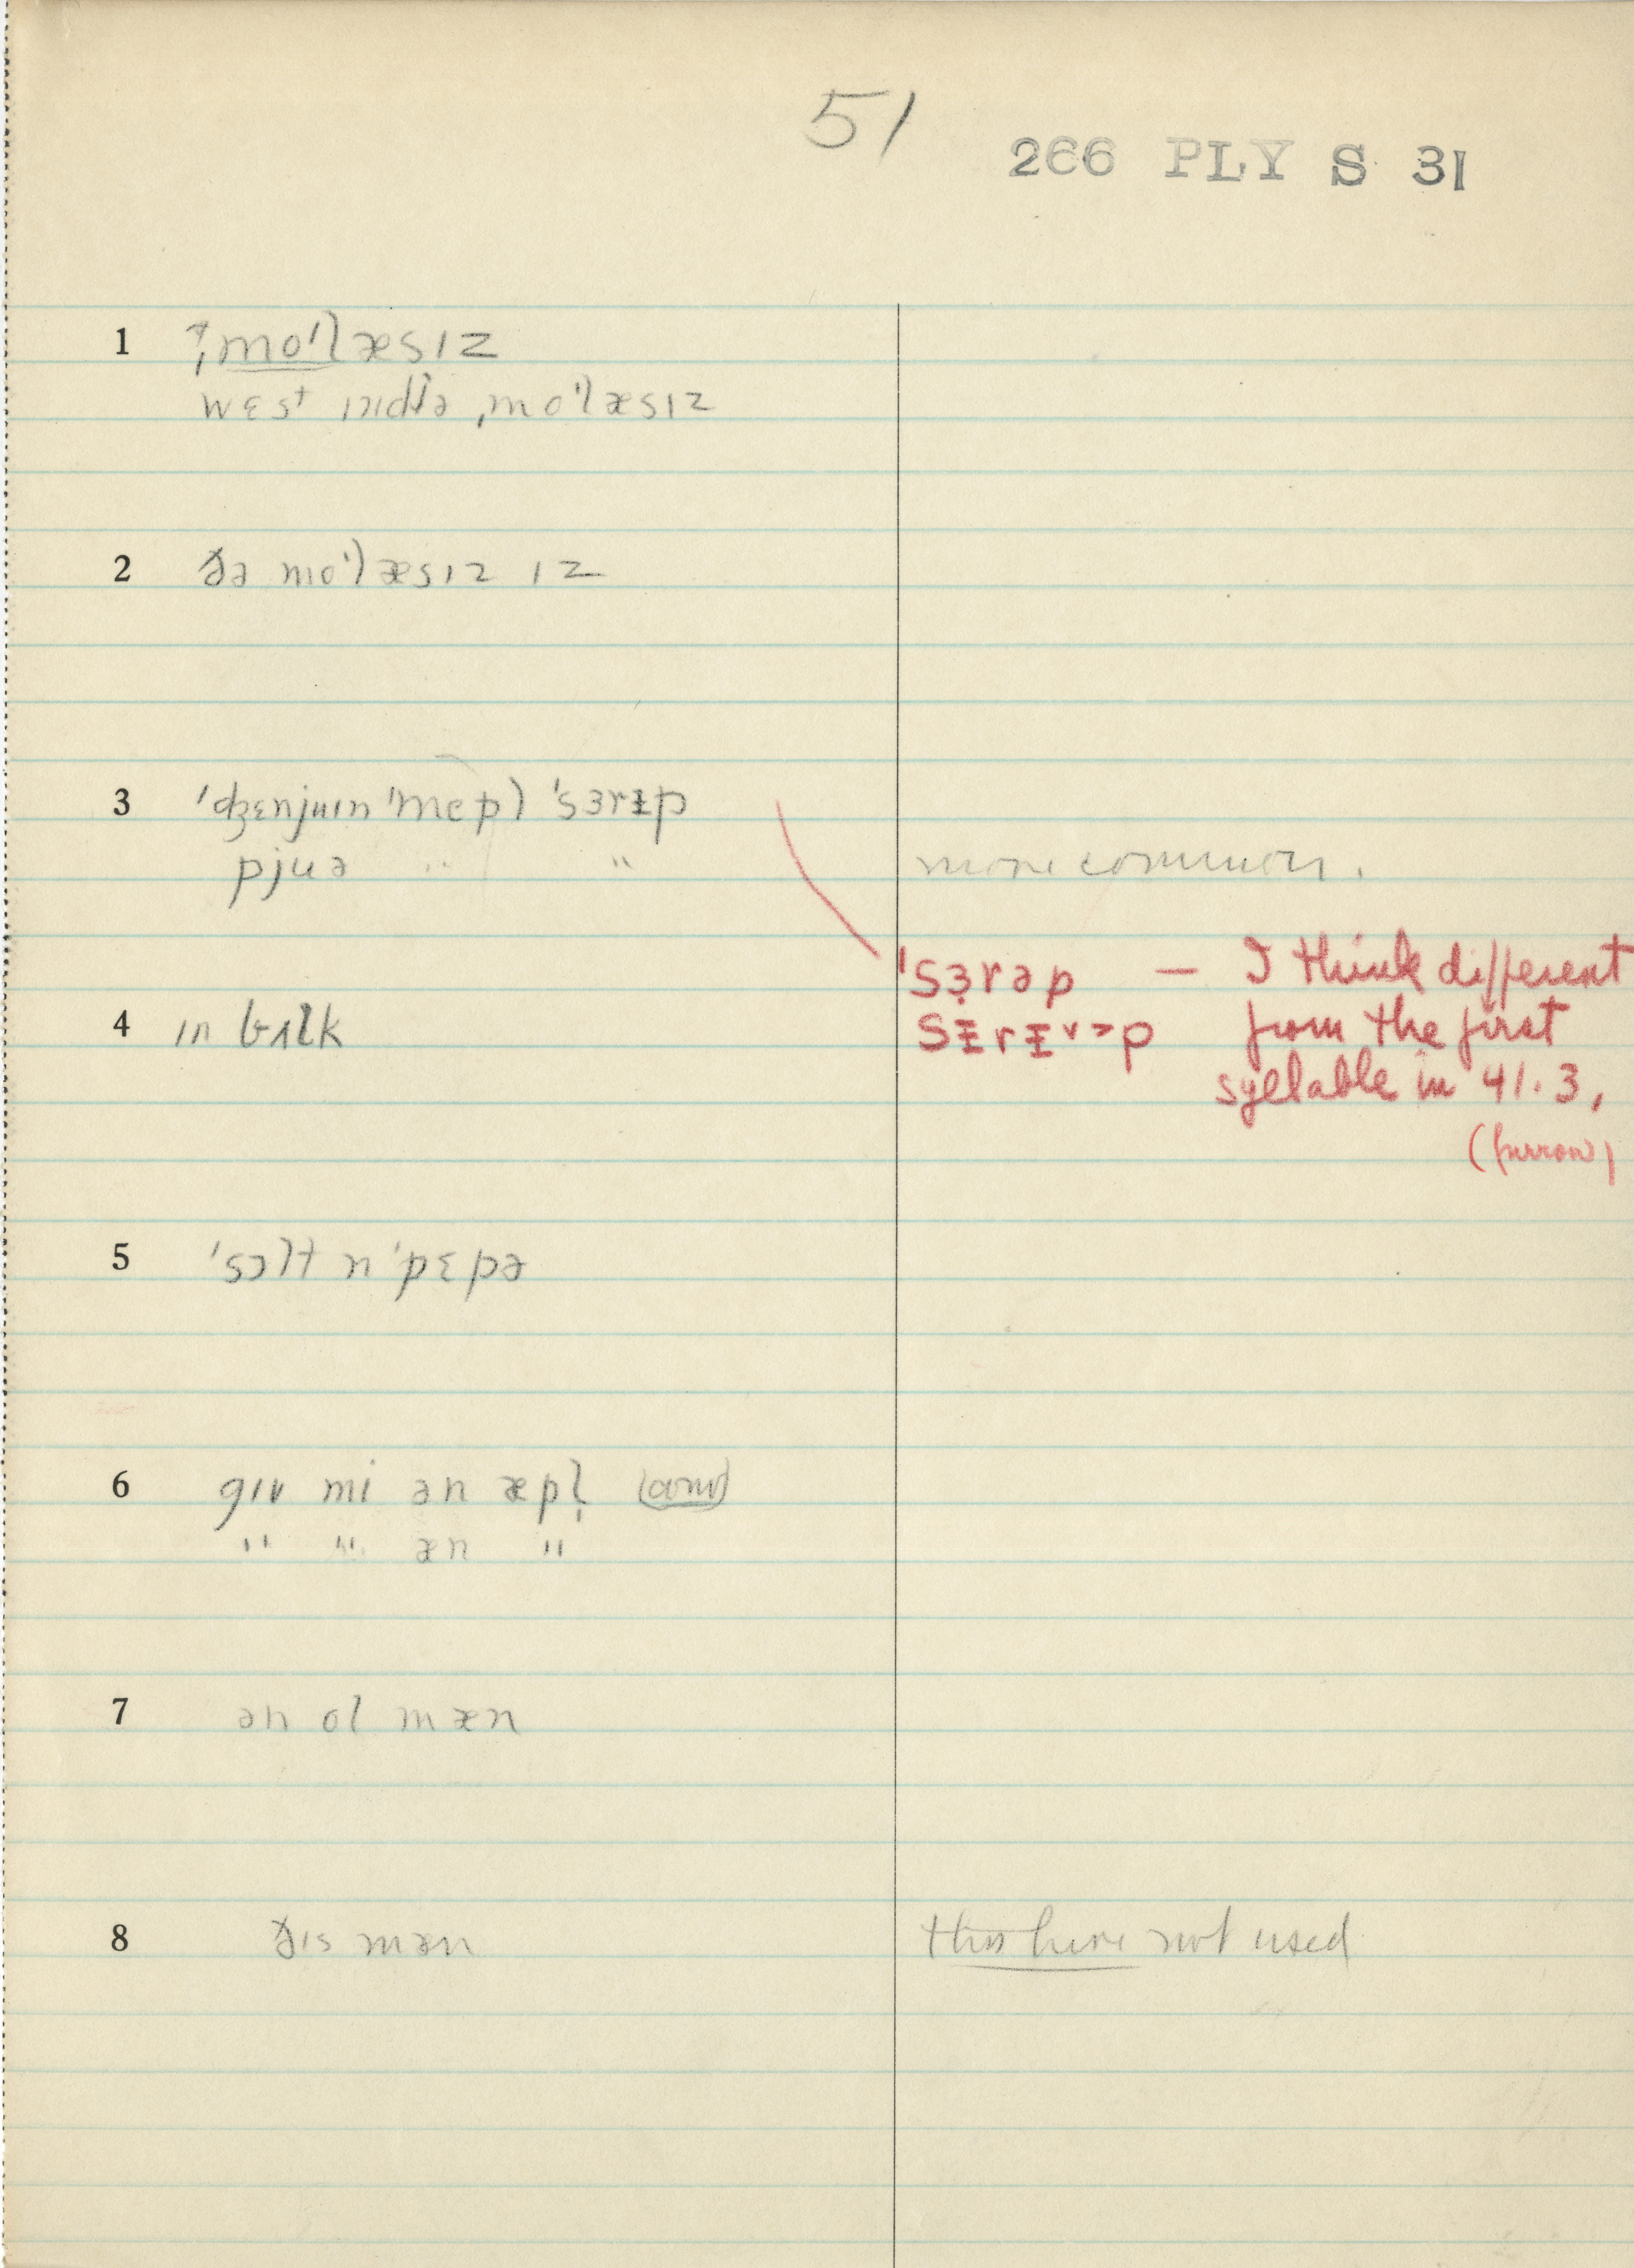 51
266 PLY S 31
1 ˌmoˈlæsɪz
wɛst ɪndɪə ˌmoˈlæsɪz
2 ðə moˈlæsɪz ɪz
3 ˈdʒɛnjuɪn ˈmepl ˈsɜrɨp
pjuə " " more common.
ˈsɜ̣rəp — I think different
sɨrɨ˅˃p from the first
4 ɪn bʌlk
syllable in 41.3,
(furrow)
5 ˈsɔlt n ˈpɛpə
6 gɪv mi ən æpl̩
" " æn "
7 ən ol mæn
8 ðɪs mæn this here not used